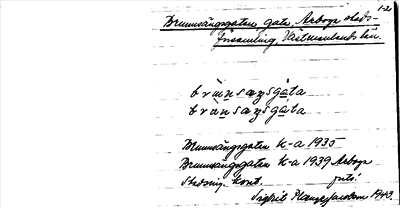 1-2
Brunnsängsgatan, gata, Arboga stads-
församling, Västmanlands län.
brùnsaŋsgàta
brùnsaŋsgáta
Brunnsängsgatan K-a 1935
Brunnsängsgatan K-a 1939 Arboga
Stadsing. kont.
Sigfrid 1943.